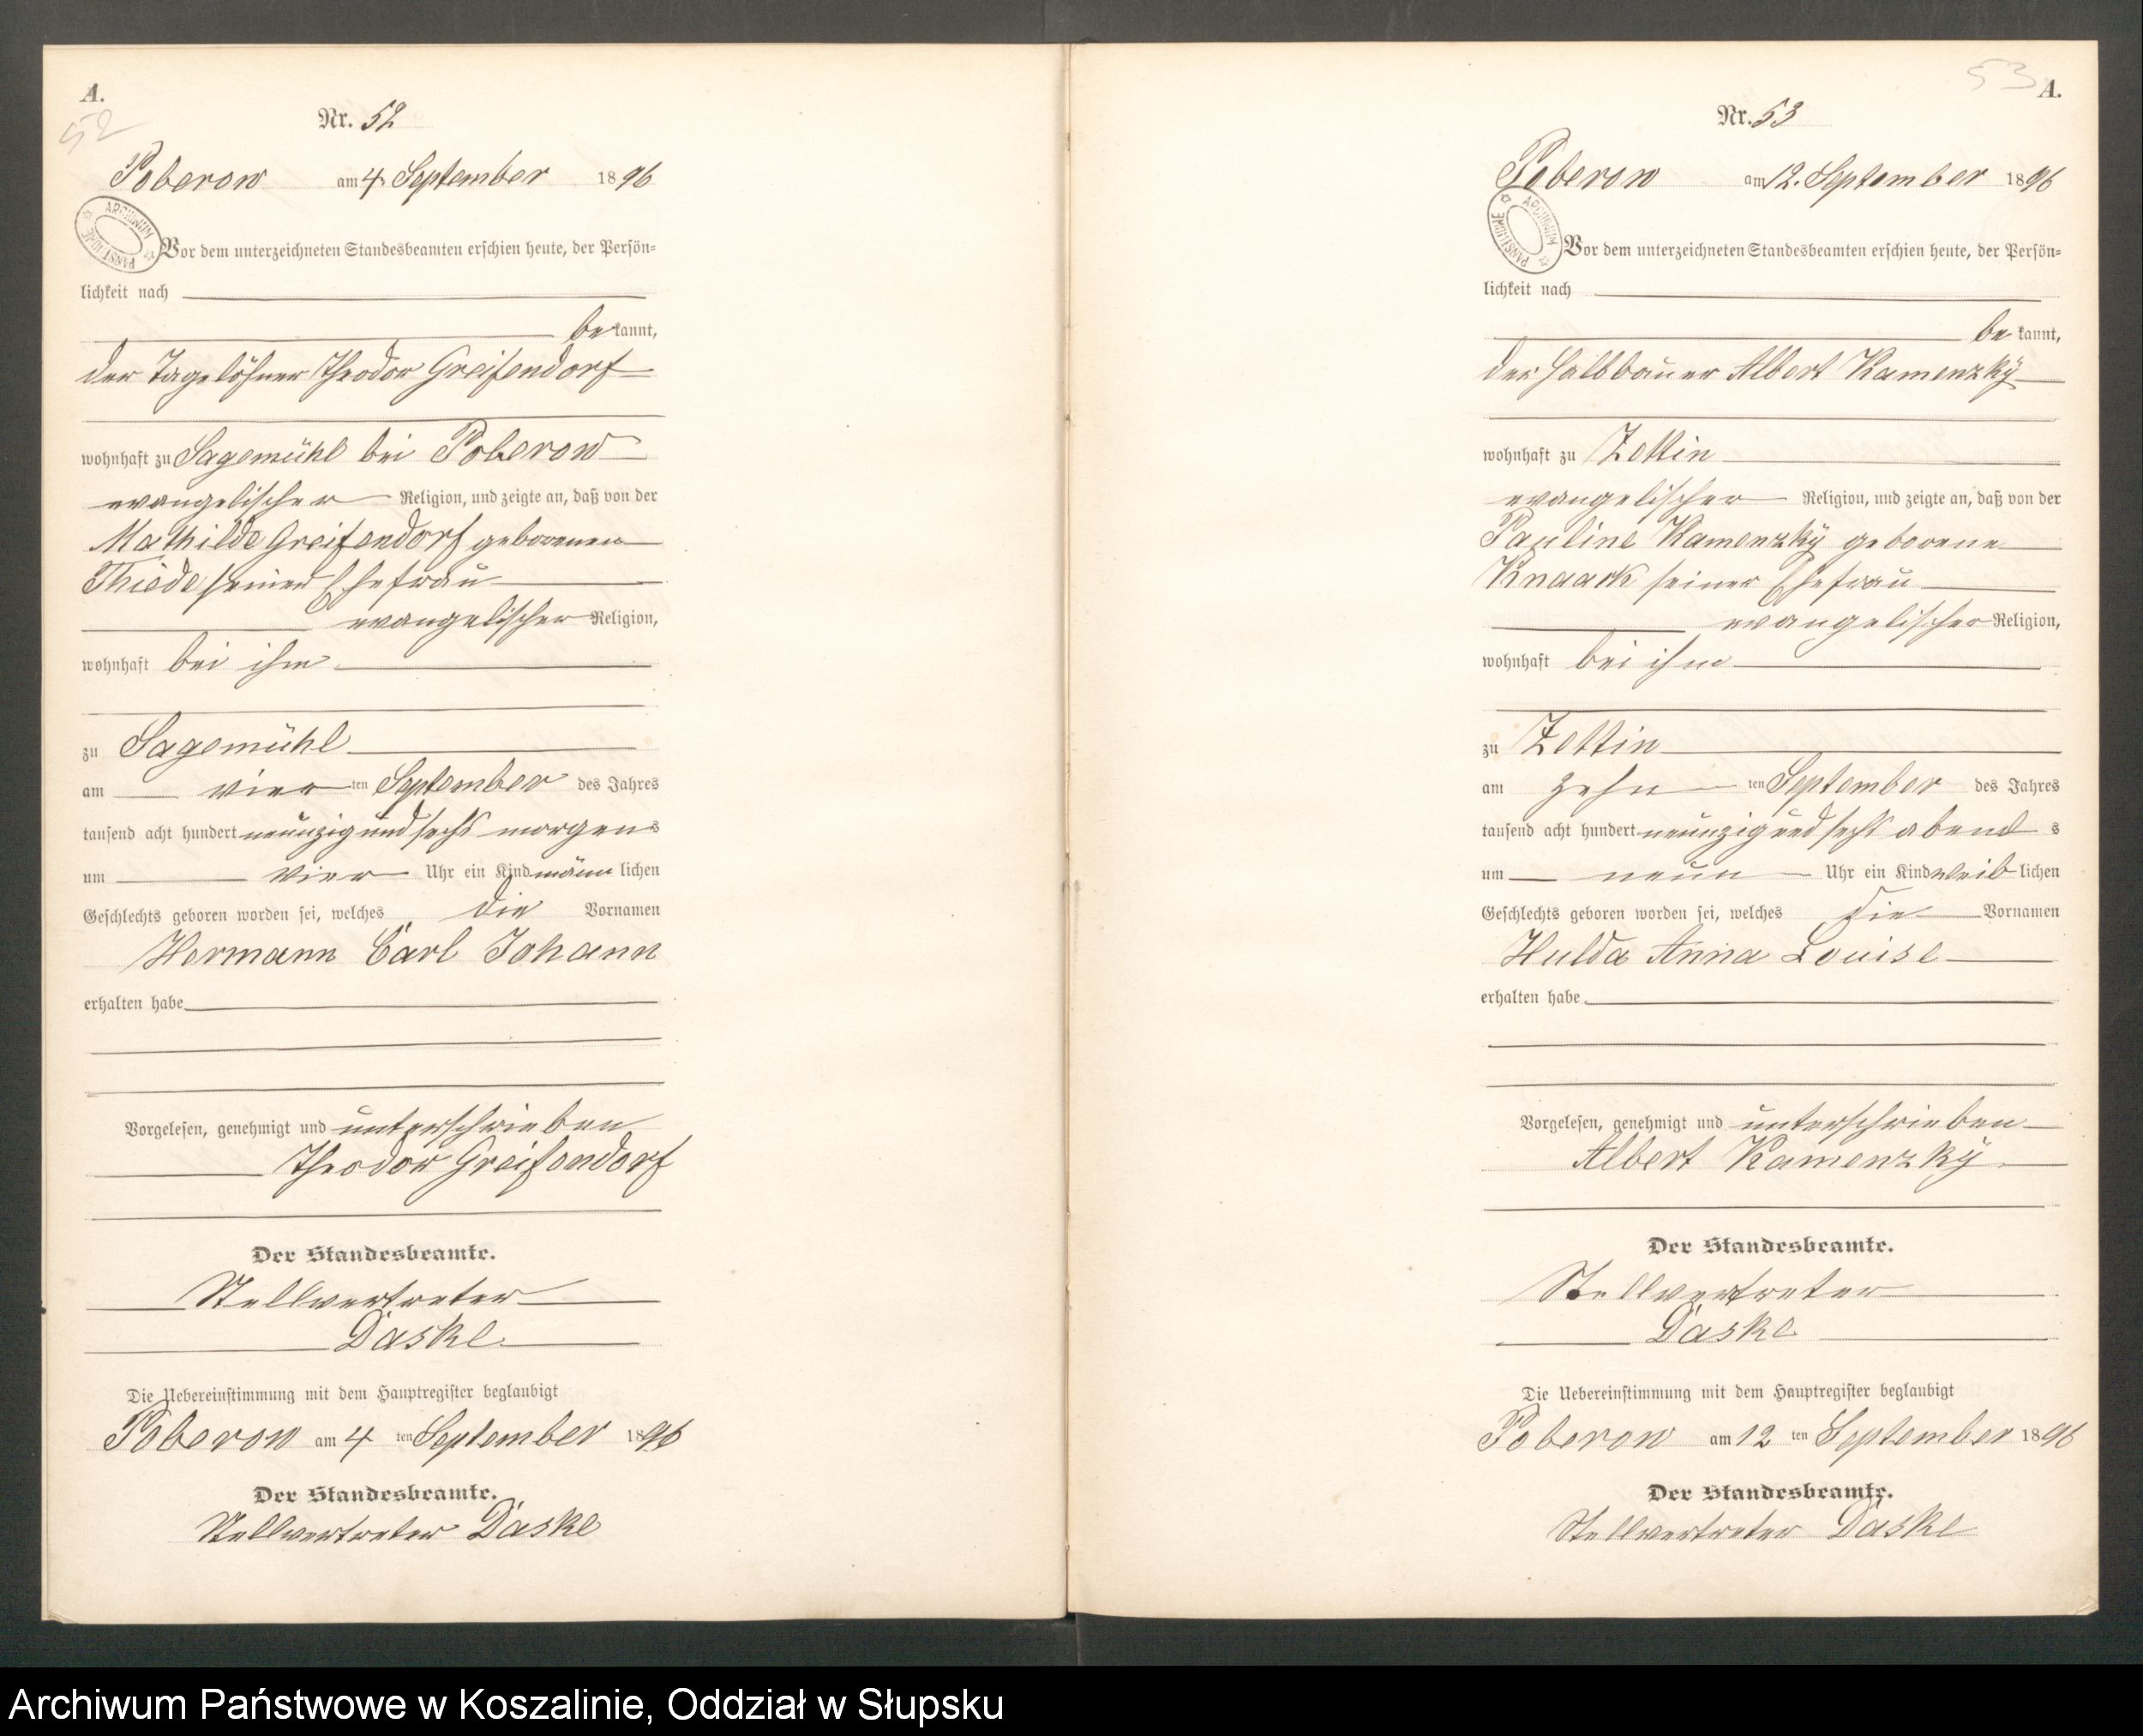 A.
52
Nr. 52
Poberow am 4. September 1896
ARCHIWUM PAŃSTWOWE
Vor dem unterzeichneten Standesbeamten erschien heute, der Persön-
lichkeit nach
be kannt,
der Tagelöhner Theodor Greifendorf
wohnhaft zu Sagemühl bei Poberow
evangelischer Religion, und zeigte an, daß von der
Mathilde Greifendorf geborenen
Thiede seiner Ehefrau
evangelischer Religion,
wohnhaft bei ihm
zu Sagemühl
am vier ten September des Jahres
tausend acht hundert neunzig und sechs morgens
um vier Uhr ein Kind männ lichen
Geschlechts geboren worden sei, welches die Vornamen
Hermann Carl Johann
erhalten habe
Vorgelesen, genehmigt und unterschrieben
Theodor Greifendorf
Der Standesbeamte.
Stellvertreter
Daske
Die Uebereinstimmung mit dem Hauptregister beglaubigt
Poberow am 4 ten September 1896
Der Standesbeamte.
Stellvertreter Daske
53
A.
Nr. 53
Poberow am 12. September 1896
ARCHIWUM PAŃSTWOWE
Vor dem unterzeichneten Standesbeamten erschien heute, der Persön-
lichkeit nach
be kannt,
der Halbbauer Albert Kamenzky
wohnhaft zu Zettin
evangelischer Religion, und zeigte an, daß von der
Pauline Kamenzky geborene
Knaack seiner Ehefrau
evangelischer Religion,
wohnhaft bei ihm
zu Zettin
am zehn ten September des Jahres
tausend acht hundert neunzig und sechs abend s
um neun Uhr ein Kind weib lichen
Geschlechts geboren worden sei, welches die Vornamen
Hulda Anna Louise
erhalten habe
Vorgelesen, genehmigt und unterschrieben
Albert Kamenzky
Der Standesbeamte.
Stellvertreter
Daske
Die Uebereinstimmung mit dem Hauptregister beglaubigt
Poberow am 12 ten September 1896
Der Standesbeamte.
Stellvertreter Daske
Archiwum Państwowe w Koszalinie, Oddział w Słupsku